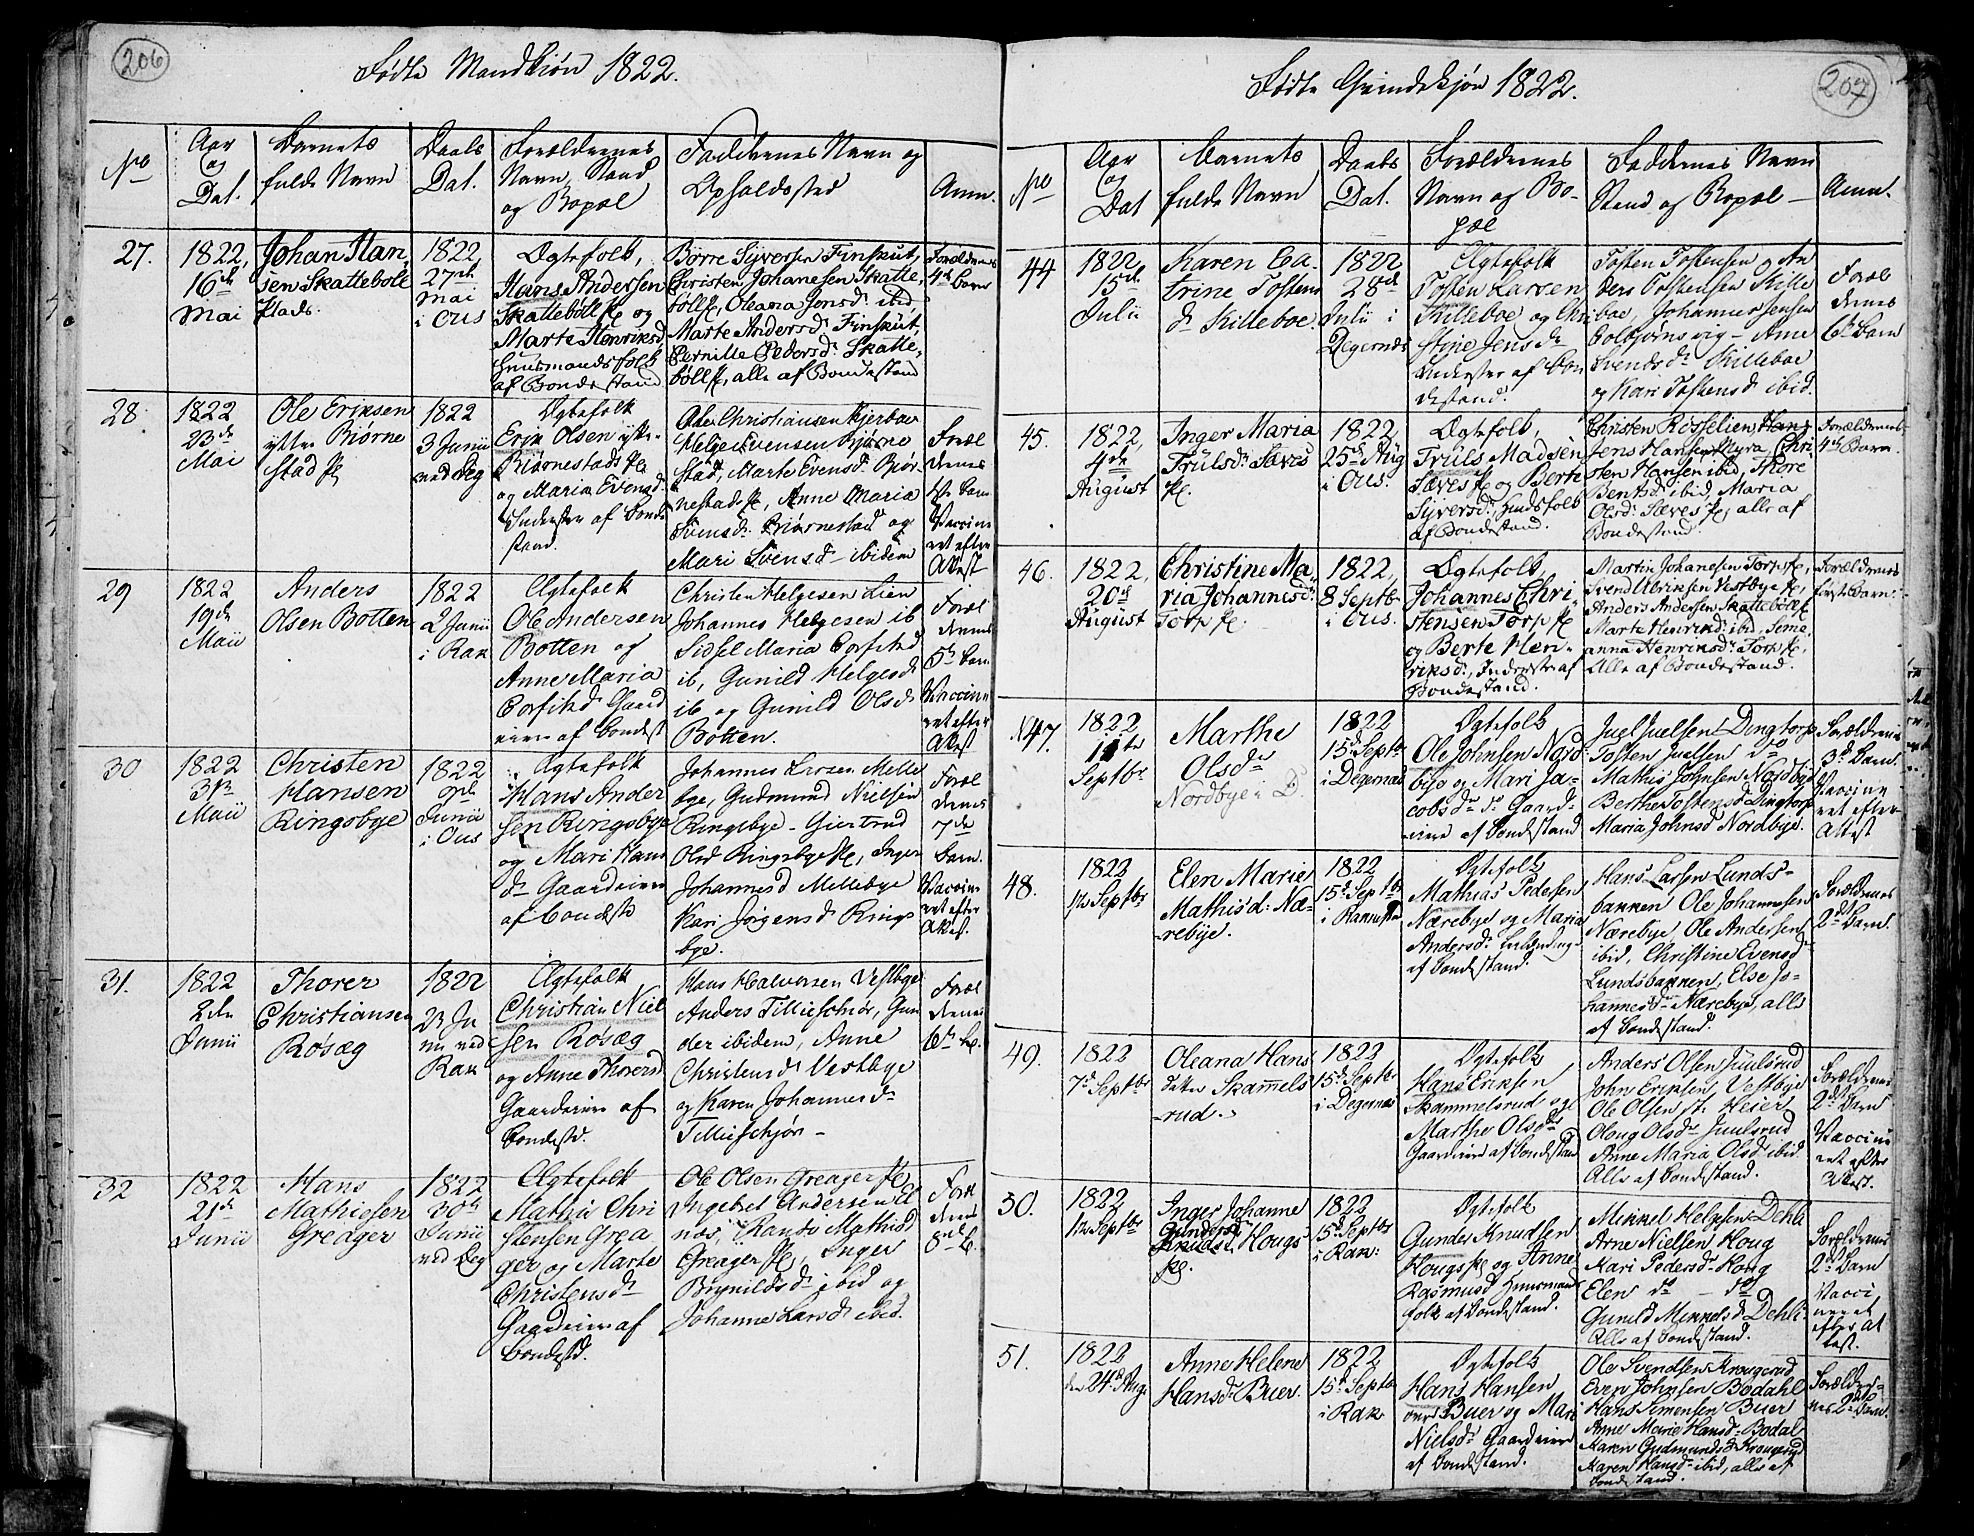 206
Fødte Mandkiøn 1822.
No
Aar
og
Dat.
Barnets
fulde Navn
Daabs
Dat.
Forældrenes
Navn, Stand
og Bopæl
Faddernes Navn og
Opholdssted
Anm.
27.
1822,
16de
Mai
Johan Han-
sen Skattebøll
Plads.
1822
27de
Mai
i Øus
Ægtefolk,
Hans Andersen
Skattebøll Pl og
Marte Henriksd.
Huusmandsfolk
af Bondestand
Børre Syversen Finskut,
Christen Johanesen Skatte-
bøll Pl, Oleana Jonsd: ibid
Marte Andersd: Finskut,
Pernille Pedersd: Skatte-
bøll Pl, alle af Bondestand
Forældrenes
4de Barn
28.
1822
23de
Mai
Ole Eriksen
yttre Biørne
stad Pl
1822
3 Junii
ved Deg
Ægtefolk
Erik Olsen yttre
Biørnestad Pl
og Maria Evensd.
Inderster af Bonde
stand.
Ole Christiansen Kjerboe
Helge Evensen Biørne
stad, Marte Evensd: Biør
nestad Pl, Anne Maria
Svensd: Biørnestad og
Mari Svensd: ibidem
Foræl
drenes
Barn
Vaccine
ret efter
Attest
29
1822
19de
Maii
Anders
Olsen Botten
1822
2 Junii
i Rak
Ægtefolk
Ole Andersen
Botten og
Anne Maria
Corfitzd Gaard
eiere af Bondest
Christen Helgesen Lien
Johannes Helgesen ib
Sidsel Maria Corfitzd
ib, Gunild Helgesd
ib og Gunild Olsd
Botten.
Foræl
drenes
5te Barn
Vaccine
ret efter
Attest
30
1822
3die
Maii
Christen
Hansen
Ringsbye
1822
9de
Junii
i Øus
Ægtefolk
Hans Ander
sen Ringsbye
og Mari Hans
dr Gaardeiere
af Bondestd
Johannes Larsen Melle
bye, Gudmund Nielsen
Ringsbye - Giertrud
Olsd Ringsbye Pl, Inger
Johannesd Mellebye
Kari Jørgensd Rings
bye.
Foræl
drenes
7de
Barn.
Vaccine
ret efter
Attest.
31.
1822
2den
Junii
Thorer
Christiansen
Rosæg
1822
23 Ju
nii ved
Rak
Ægtefolk
Christian Niel
sen Rosæg
og Anne Thoresd
Gaardeiere af
Bondestd.
Hans Halvorsen Vestbye
Anders Tilliefschiør, Gun
der ibidem, Anne
Christensd Vestbye
og Karen Johannesd
Tillieschjør -
Foræl
drenes
6te B.
32
1822
21de
Junii
Hans
Mathiesen
Greager
1822
30te
Junii
ved Deg
Ægtefolk
Mathis Chri
stensen Grea
ger og Marte
Christensd
Gaardeiere af
Bondestd.
Ole Olsen Greager Pl
Ingebret Andersen El
næs, Randi Mathisd
Greager Pl, Inger
Brynildsd ibid og
Johanne Larsd ibid.
Foræl
drenes
8de B.
207
Fødte Qvindekjøn 1822.
No
Aar
og
Dat
Barnets
fulde Navn
Daabs
Dat.
Forældrenes
Navn og Bo-
pæl
Faddernes Navn
Stand og Bopæl -
Anm.
44
1822
15de
Julii
Karen Ca-
trine Tostens
dr Killeboe
1822
28de
Julii i
Degernæs
Ægtefolk
Tosten Larsen
Killeboe og Chri
stine Jensdr
Inderster af Bon
destand.
Tosten Tostensen og An
ders Tostensen Kille
boe, Johannes Jensen
Colbjørnsvig - Anne
Svendsdr Killeboe
og Kari Tostensd ibid.
Foræl
drenes
6te Barn
45.
1822,
4de
August
Inger Maria
Trulsd: Sæves
Pl.
1822,
25de Aug
i Øus.
Ægtefolk,
Truls Madsen
Sæves Pl og Berte
Syversd: Huusfolk
af Bondestand.
Christen Røsselien
Jens Hansen Myra Chri
sten Hansen ibid, Thore
Bentsd: ibid, Maria
Olsd: Sæves Pl, alle af
Bondestand.
Forældrenes
4de Barn.
46.
1822,
20de
August
Christine Ma-
ria Johannesd:
Torp Pl.
1822,
8 Septbr
i Øus.
Ægtefolk,
Johannes Chri-
stensen Torp Pl
og Berte Hen-
riksd:, Inderster af
Bondestand.
Martin Johanesen Torp Pl,
Svend Ulriksen Vestbye Pl,
Anders Andersen Skattebøll
Marte Henriksd: ibid, Seme-
anna Henriksd: Torp Pl,
Alle af Bondestand.
Forældrenes
første Barn.
47.
1822
11te
Septbr
Marthe
Olsdr
Nordbye i D.
1822
15de Septbr
i Degernæs
Ægtefolk
Ole Johnsen Nord-
bye og Mari Ja-
cobsdr Gaard-
eiere af Bondestand
Juel Juelsen Dingtorp
Tosten Juelsen do
Mathis Johnsen Nordbye
Berthe Tostensd Dingtorp
Maria Johnsd Nordbye.
Forældrenes
3de Barn.
Vaccine
ret efter
Attest
48.
1822
Septbr
Elen Marie
Mathisd: Næ-
rebye.
1822
15de Septbr
i Rakkestad
Ægtefolk
Mathias Pedersen
Nærebye og Maria
Andersd:
af Bondestand.
Hans Larsen Lunds-
bakken Ole Johannesen
Nærebye, Ole Andersen
ibid, Christine Evensd
Lundsbakken, Else Jo-
hannesd: Nærebye, alle
af Bondestand.
Forældrenes
2det Barn.
49.
1822
7de Septbr
Oleana Hans
datter Skammels
rud.
1822
15de Septbr
i Degernæs
Ægtefolk
Hans Eriksen
Skammelsrud og
Marthe Olsdr
Gaardeiere af Bondestand
Anders Olsen Juulsrud
John Eriksen Vestbye
Ole Olsen st. Heier
Oloug Olsdr Juulsrud
Anne Maria Olsd: ibid
Alle af Bondestand.
Forældrenes
2det Barn
Vaccine
ret efter
Attest.
50.
1822
Septbr
Inger Johanne
Gundersd
Knudsd Hougs
Pl.
1822
15de Septbr
i Rak:
Ægtefolk
Gunder Knudsen
Hougs Pl og Anne
Rasmusd Huusmands
folk af Bondestand.
Mikkel Helgesen Dehli
Arne Nielsen Houg
Kari Pedersd: Houg
Elen do - do
Gunild Mikkelsd Dehli
Alle af Bondestand.
Forældrenes
2det Barn
Vacci
neret
efter at
test.
51.
1822
den 24de Aug.
Anne Helene
Hansdr Buer.
1822
15de Septbr
i Rak
Ægtefolk
Hans Hansen
øvre Buer og Mari
Nielsdr Gaardeiere
af Bondestand.
Ole Svendsen Krougerud
Even Johnsen Bodahl
Hans Simensen Buer
Anne Marie Hansd: Bodal
Karen Gudmundsd Krougerud
Karen Hansd: ibid, alle af
Bondestand.
Forældre-
nes 2det Barn.